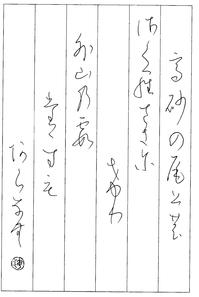 高砂の尾上の
さくらさきに
けり
外山乃霞
たゝずも
あらなむ